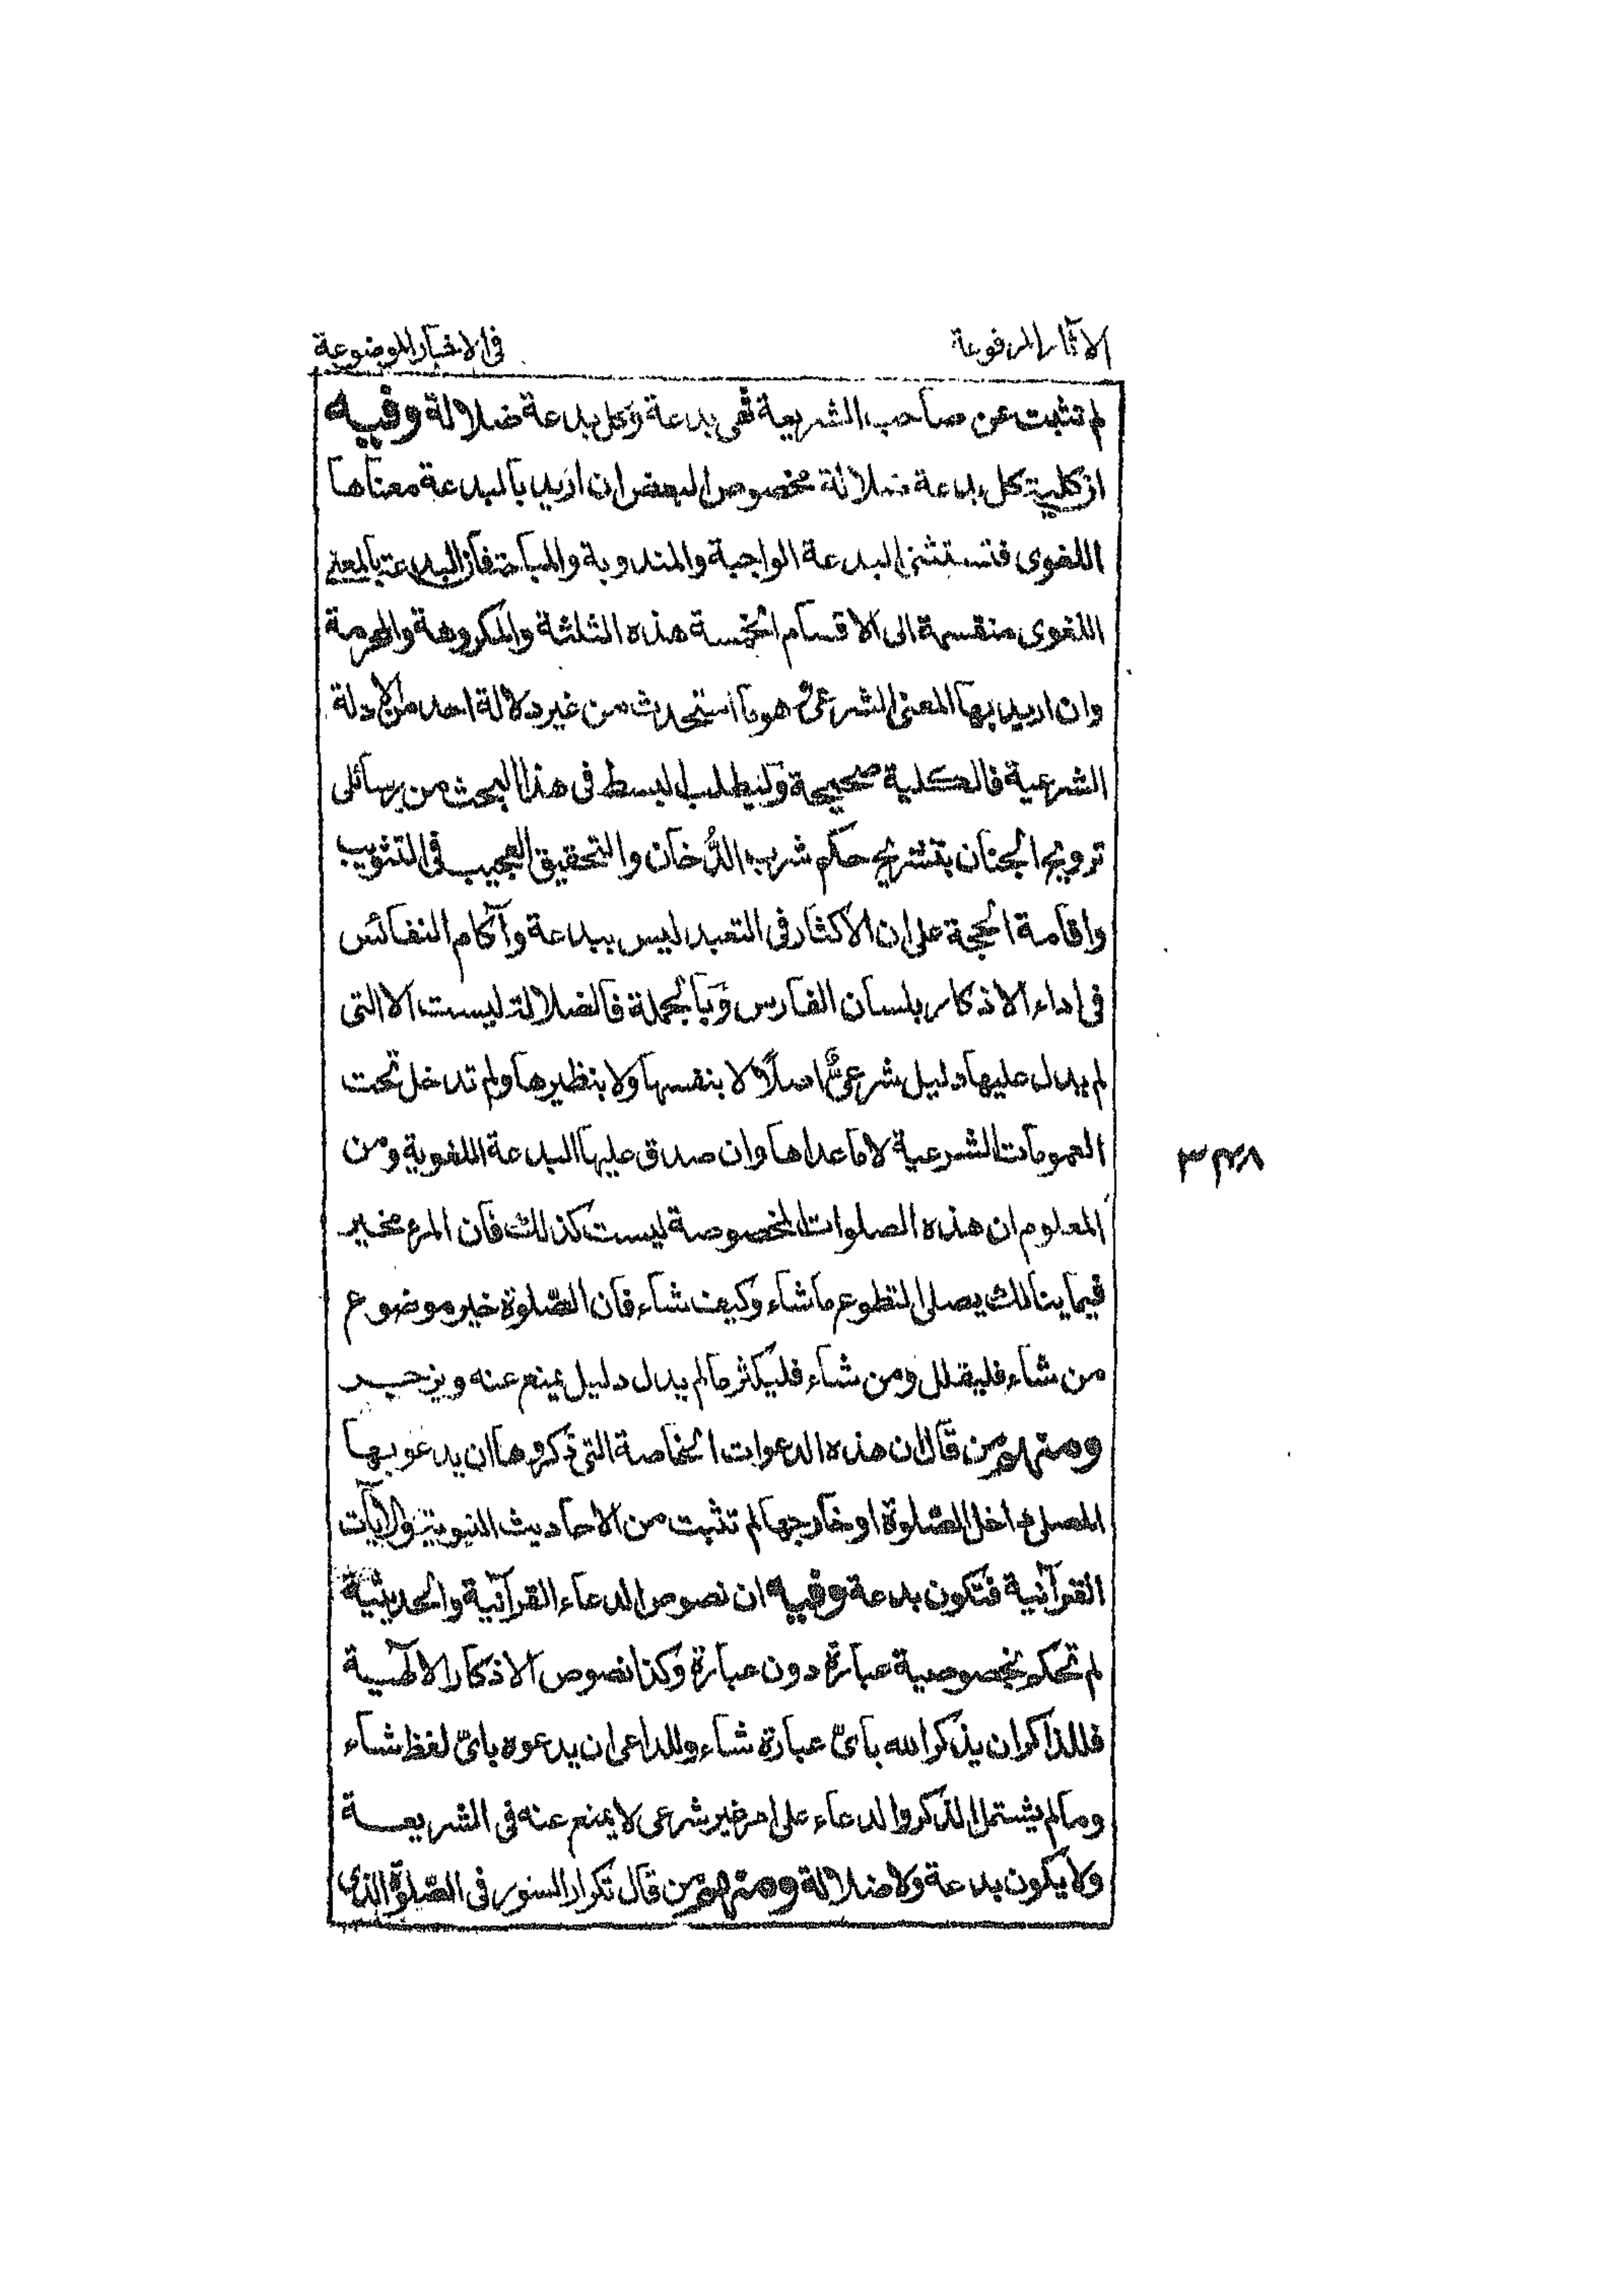 الآثار المرفوعة
فى الاخبار الموضوعة
لم تثبت عن صاحب الشريعة فهى بدعة وكل بدعة ضلالة وفيه
ان كلية كل بدعة ضلالة مخصوص البعض ان اريد بالبدعة معناها
اللغوى فتستثنى البدعة الواجبة والمندوبة والمباحة فان البدعة بالمعنى
اللغوى منقسمة الى الاقسام الخمسة هذه الثلثة والمكروهة والمحرمة
وان اريد بها المعنى الشرعى هو ما استحدث من غير دلالة احد من الادلة
الشرعية فالكلية صحيحة وليطلب البسط فى هذا البحث من رسائلى
ترويح الجنان بتشريح حكم شرب الدُّخان والتحقيق العجيب فى التثويب
واقامة الحجة على ان الاكثار فى التعبد ليس ببدعة وآكام النفائس
فى اداء الاذكار بلسان الفارس وبالجملة فالضلالة ليست الا التى
لم يدل عليها دليل شرعىٌّ اصلًا لا بنفسها ولا بنظيرها ولم تدخل تحت
العمومات الشرعية لا ما عداها وان صدق عليها البدعة اللغوية ومن
المعلوم ان هذه الصلوات المخصوصة ليست كذلك فان المرء مخير
فيما ينالك يصلى المتطوع ما شاء وكيف شاء فان الصّلوة خير موضوع
من شاء فليقلل ومن شاء فليكثر ما لم يدل دليل يمنع عنه ويزجر
ومنهم من قال ان هذه الدعوات الخاصة التى ذكروها ان يدعو بها
المصلى داخل الصّلوة او خارجها لم تثبت من الاحاديث النبوية والآيات
القرآنية فتكون بدعة وفيه ان نصوص الدعاء القرآنية والحديثية
لم تحكم بخصوصية عبارة دون عبارة وكذا نصوص الاذكار الالٰهية
فللذاكر ان يذكر الله باىّ عبارة شاء وللداعى ان يدعوه باىّ لفظ شاء
وما لم يشتمل الذكر والدعاء على امر غير شرعى لا يمنع عنه فى الشريعة
ولا يكون بدعة ولا ضلالة ومنهم من قال تكرار السور فى الصّلوة الذى